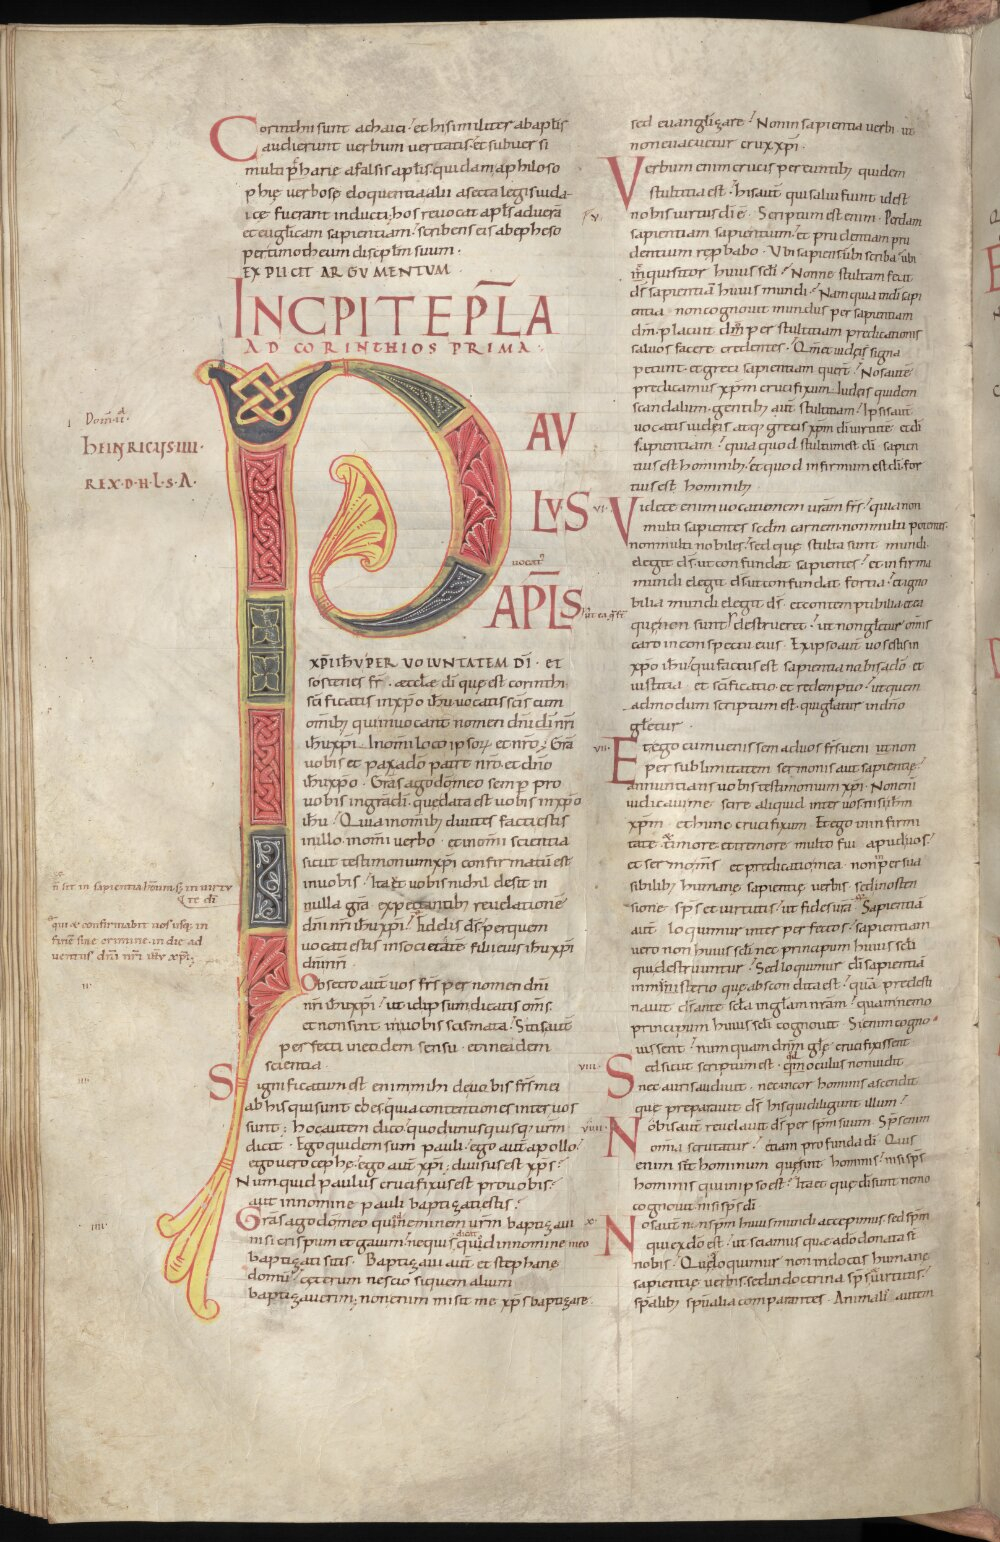 Corinthi sunt achaici· et hi similiter ab ap̅lis
audierunt verbum veritatis· et subuersi
multi p̅harie a falsis ap̅lis. quidam a philoso
phię verbose eloquentia alii a secta legis iuda-
icę fuerant inducti; hos reuocat ap̅ls ad uerā
et eu̅glicam sapientiam· scribens eis ab epheso
per timotheum discip̅lm suum·
EXPLICIT ARGUMENTUM
INCPIT EP̅LA
AD CORINTHIOS PRIMA·
PAV
LVS
uocat᾽
AP̅LS
XP̅I IH̅U PER VOLUNTATEM D̅I· et
sostenes fr̅· ęcclę d̅i quę est corinthi·
sc̅ificatis in xp̅o ih̅u uocatis sc̅is cum
omib; qui inuocant nomen dn̅i n̅ri
ih̅u xp̅i· In om̅i loco ipsoꝝ et n̅ro; Gr̅a
uobis et pax a d̅o patre n̅ro· et dn̅o
ih̅u xp̅o· Gr̅as ago d̅o meo semp̅ pro
uobis in gr̅a d̅i· quę data est uobis in xp̅o
ih̅u· Quia in om̅ib; diuites facti estis
in illo· in om̅i uerbo· et in om̅i scientia
sicut testimonium xp̅i confirmatū est
in uobis· Ita ut uobis nichil desit in
nulla gr̅a· expectantib; reuelationē
dn̅i n̅ri ih̅u xp̅i· fidelis d̅s· per quem
uocati estis in societatem filii eius ih̅u xp̅i
dn̅i n̅ri·
Obsecro aut̅ uos fr̅s· per nomen dn̅i
n̅ri ih̅u xp̅i· ut idipsum dicatis om̅s·
et non sint in uobis scismata· Sitis aut̅
perfecti in eodem sensu· et in eadem
scientia·
Significatum est enim mihi de uobis fr̅s mei
ab his qui sunt chloes· quia contentiones inter uos
sunt; hoc autem dico· quod unusquisq; ur̅m
dicit· Ego quidem sum pauli· ego aut̅ apollo·
ego uero cephę· ego aut̅ xp̅i; diuisus est xp̅s·
Numquid paulus crucifixus est pro uobis·
aut in nomine pauli baptizati estis·
Gr̅as ago d̅o meo qui neminem ur̅m baptizaui
nisi crispum et gaium· ne quis dicat quod in nomine meo
baptizati sitis· Baptizaui aut̅ et stephanę
domū· cęterum nescio si quem alium
baptizauerim; non enim misit me xp̅s baptizare·
Dom̅· ii·
HEINRICUS IIII·
REX·D·H·L·S·A·
n̅ sit in sapientia hominū; s; in uirtu
te d̅i
qui & confirmabit uos usq; in
finē sine crimine· in die ad
uentus dn̅i n̅ri ih̅u xp̅i·
ii·
iii·
iiii·
sed euangelizare· Non in sapientia uerbi· ut
non euacuetur crux xp̅i·
Verbum enim crucis pereuntib; quidem
stultitia est· his aut̅ qui salui fiunt id est
nobis uirtus d̅i ē· Scriptum est enim· Perdam
sapientiam sapientium· et prudentiam pru
dentium reprobabo· Ubi sapiens ubi scriba· ubi
inquisitor huius sc̅li· Nonne stultam fecit
d̅s sapientiā huius mundi· Nam quia in d̅i sapi
entia non cognouit mundus per sapientiam
d̅m· placuit d̅m per stultitiam predicationis
saluos facere credentes· Qm̅ et iudęi signa
petunt· et greci sapientiam quer̅t· Nos aut̅
predicamus xp̅m crucifixum· Iudęis quidem
scandalum· gentib; aut̅ stultitiam· Ipsis aut̅
uocatis iudęis atq; grecis xp̅m d̅i uirtutē· et d̅i
sapientiam· quia quod stultum est d̅i· sapien
tius est hominib;· et quod infirmum est d̅i· for
tius est hominib;
Videte enim uocationem ur̅am fr̅s· quia non
multi sapientes scd̅m carnem· non multi potentes·
non multi nobiles· sed quę stulta sunt mundi·
elegit d̅s· ut confundat sapientes· et infirma
mundi elegit d̅s ut confundat fortia· et igno
bilia mundi elegit d̅s· et contemptibilia et ea
quę non sunt destrueret· ut non glorietur om̅is
caro in conspectu eius· Ex ipso aut̅ uos estis in
xp̅o ih̅u· qui factus est sapientia nobis a d̅o· et
iustitia et sc̅ificatio et redemptio· ut quem
admodum scriptum est· qui gl̅atur in dn̅o
gl̅etur·
Et ego cum uenissem ad uos fr̅s· ueni non
per sublimitatem sermonis aut sapientię·
annuntians uobis testimonium xp̅i· Non enī
iudicaui me scire aliquid inter uos· nisi ih̅m
xp̅m et hunc crucifixum· Et ego in infirmi
tate et timore et tremore multo fui apud uos·
et sermo m̅s et predicatio mea· non in persua
sibilib; humanę sapientię uerbis· sed in osten
sione sp̅s et uirtutis· ut fides ur̅a
aut̅ loquimur inter perfectos· sapientiam
uero non huius sc̅li nec principum huius sc̅li
qui destruuntur· Sed loquimur d̅i sapientiā
in misterio quę abscondita est· quā predesti
nauit d̅s ante sc̅la in gl̅am nr̅am· quam nemo
principum huius sc̅li cognouit· Si enim cogno
uissent· numquam dn̅m gl̅ę crucifixissent
Sed sicut scriptum est· quod oculus non uidit
nec auris audiuit· nec in cor hominis ascendit
quę preparauit d̅s his qui diligunt illum·
Nobis aut̅ reuelauit d̅s per sp̅m suum· Sp̅s enim
omnia scrutatur· etiam profunda d̅i· Quis
enim scit hominum quę sunt hominis· nisi sp̅s
hominis qui in ipso est· Ita et quę d̅i sunt nemo
cognouit nisi sp̅s d̅i
Nos aut̅ n̅ sp̅m huius mundi accepimus· sed sp̅m
qui ex d̅o est· ut sciamus quę a d̅o donata s̅t
nobis· Quę loquimur non in doctis humanę
sapientię uerbis· sed in doctrina sp̅s uirtutis·
sp̅alib; sp̅ualia comparantes· Animalis autem
v·
vi·
vii·
viii·
viiii·
x·